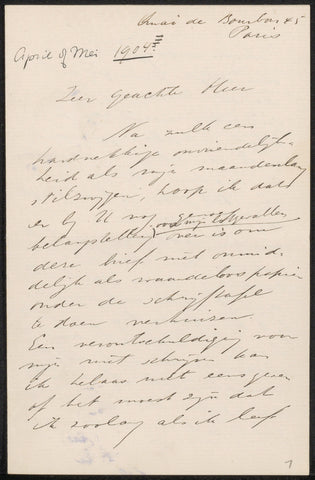 Quai de Bourbon 45
Paris
April of Mei 1904
Zeer geachte Heer
Na zulk een
hardnekkige onvriendelijk-
heid als mijn maandenlang
stilzwijgen, hoop ik dat
er bij U nog genoeg
belangstelling voor mijn over is om
deze brief niet onmid-
delijk als waardeloos papier
onder de schrijftafel
te doen verhuizen.
Een verontschuldiging voor
mijn niet schrijven kan
ik helaas niet eens geven
of het moest zijn dat
ik zoolang als ik leef
1